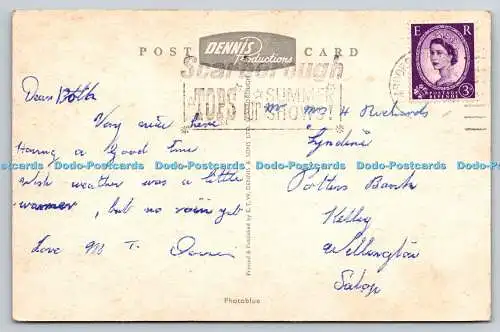 POST CARD
DENNIS
Productions
E R
3D
Scarborough
TOPS for SUMMER
SHOWS!
Dear Both
Very nice here
Having a Good Time
wish weather was a little
warmer, but no rain yet
Love
Mr Mrs H Richards
"Lyndene"
Potters Bank
Ketley
Wellington
Salop
Printed & Published by E. T. W. DENNIS & SONS LTD.
Photoblue
Dodo-Postcards Dodo-Postcards Dodo-Postcards Dodo-Postcards Dodo-Postcards